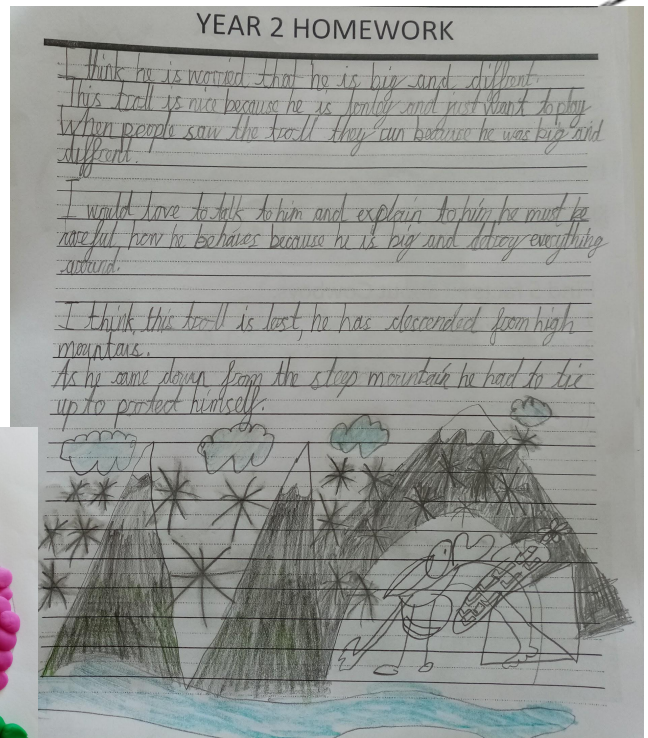 YEAR 2 HOMEWORK
I think he is worried that he is big and diffrent.
This troll is nice because he is lonley and just want to play
When people saw the troll they run because he was big and
diffrent.
I would love to talk to him and explain to him, he must be
careful, how he behaves because he is big and everything
around.
I think, this troll is lost, he has descended from high
mountais.
As he came down from the steep mountain he had to tie
up to protect himself.